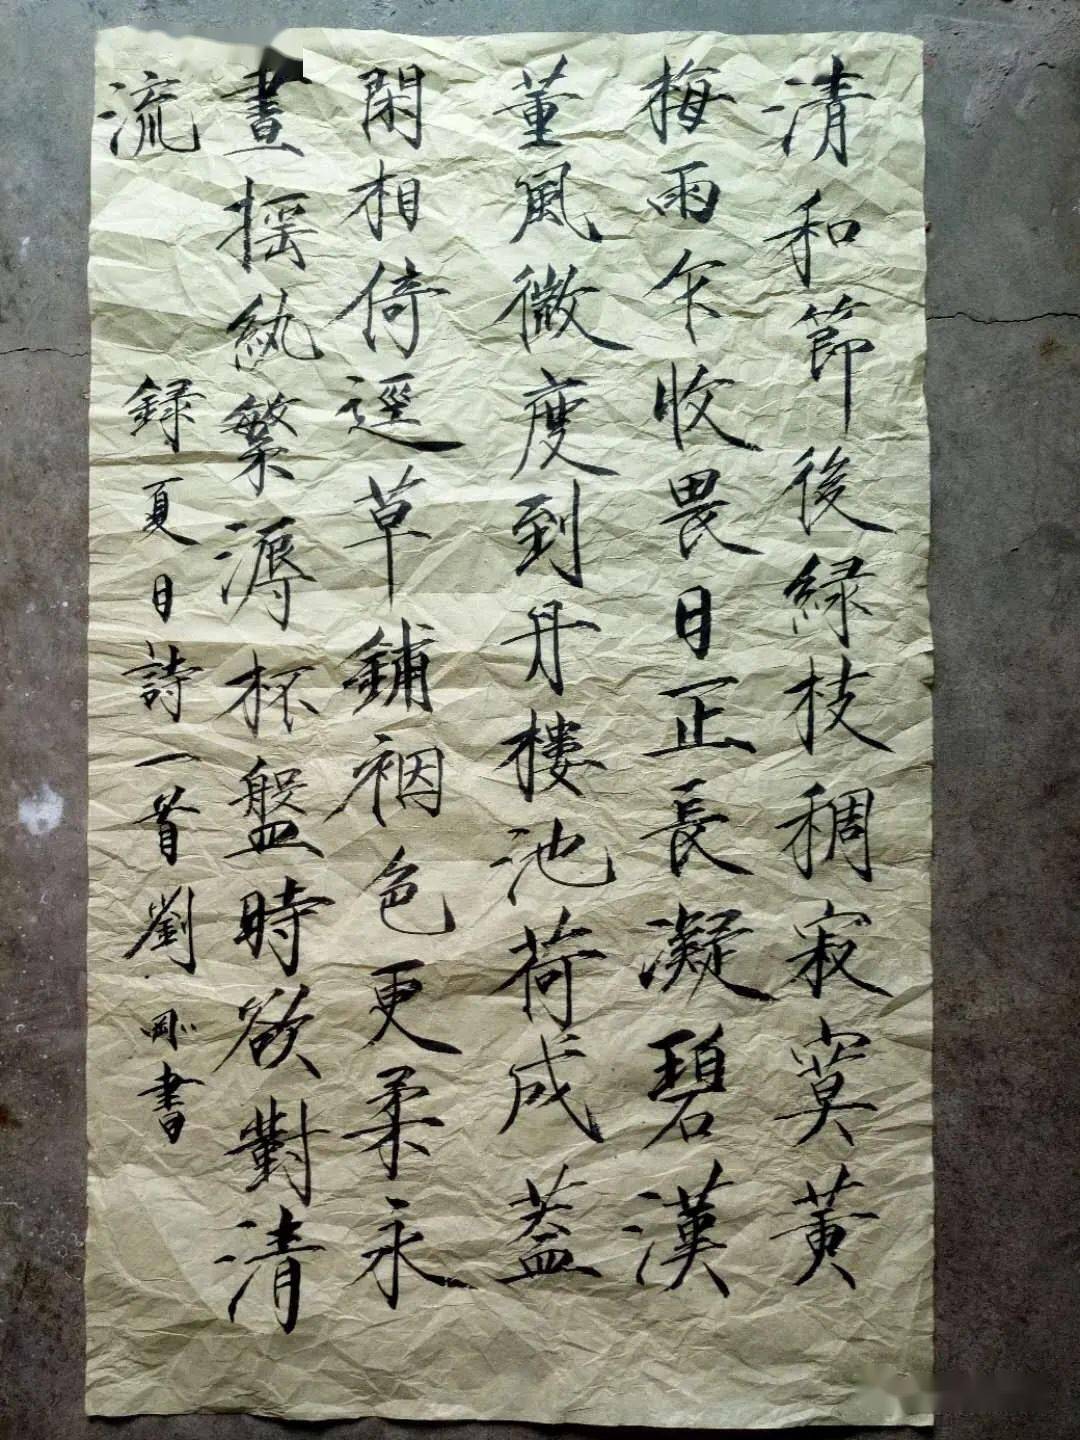 清和節後緑枝稠寂寞黃
梅雨乍收畏日正長凝碧漢
薫風微度到丹樓池荷成蓋
閑相倚逕草鋪裀色更柔永
晝揺紈繁溽杯盤時欲對清
流
録夏日詩一首劉剛書